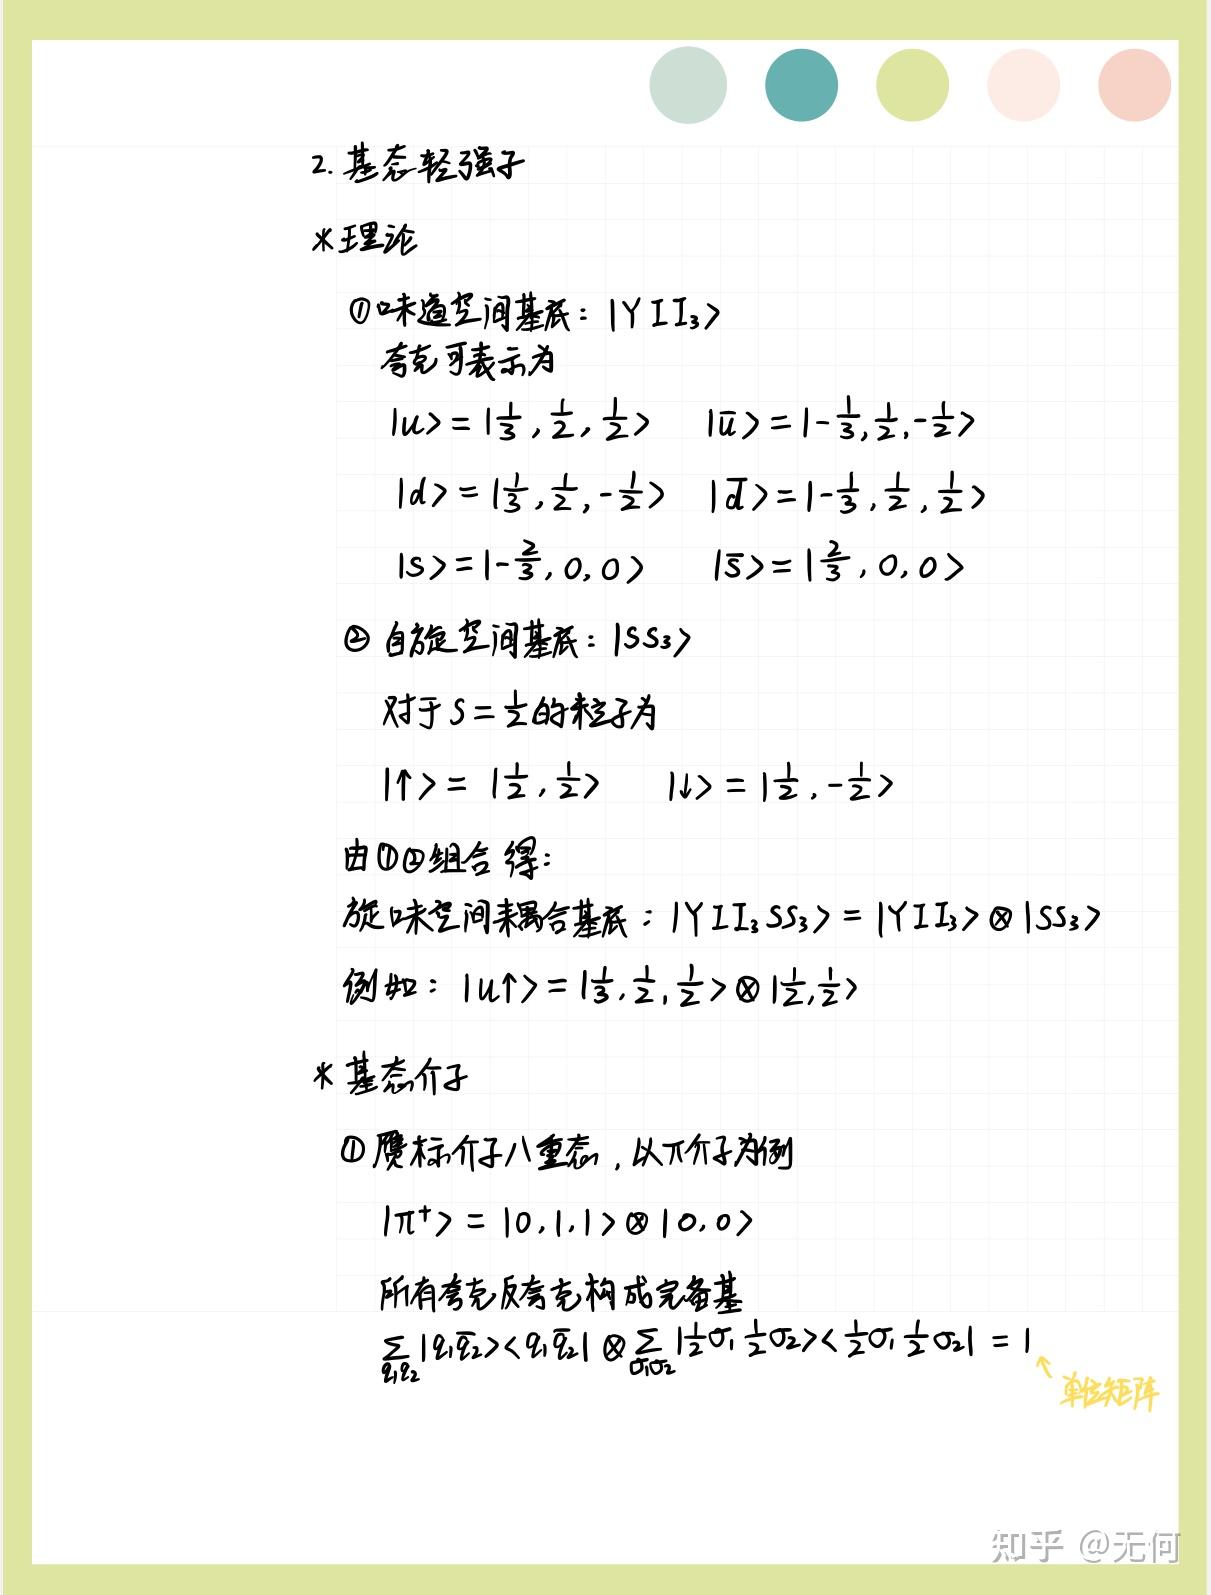 2. 基态轻强子
*理论
①味道空间基底: |Y I I₃>
夸克可表示为
|u> = |1/3, 1/2, 1/2> |ū> = |-1/3, 1/2, -1/2>
|d> = |1/3, 1/2, -1/2> |d̄> = |-1/3, 1/2, 1/2>
|s> = |-2/3, 0, 0> |s̄> = |2/3, 0, 0>
② 自旋空间基底: |SS₃>
对于 S = 1/2 的粒子为
|↑> = |1/2, 1/2> |↓> = |1/2, -1/2>
由①②组合得:
旋味空间耦合基底: |Y I I₃ SS₃> = |Y I I₃> ⊗ |SS₃>
例如: |u↑> = |1/3, 1/2, 1/2> ⊗ |1/2, 1/2>
* 基态介子
①赝标介子八重态, 以π介子为例
|π⁺> = |0, 1, 1> ⊗ |0, 0>
所有夸克反夸克构成完备基
∑_{q₁q₂} |q₁q̄₂><q₁q̄₂| ⊗ ∑_{σ₁σ₂} |1/2 σ₁ 1/2 σ₂><1/2 σ₁ 1/2 σ₂| = 1
单位矩阵
知乎 @无何